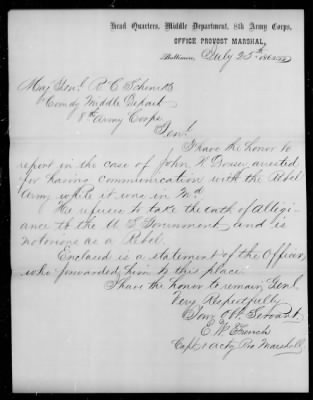 Head Quarters, Middle Department, 8th Army Corps,
OFFICE PROVOST MARSHAL,
Baltimore, July 25th 186
Maj Genl. R. C. Schenck
Comdg Middle Depart
8th Army Corps
Genl.
I have the honor to
report in the case of John W. arrested
for having communication with the Rebel
Army while it was in Md
He refuses to take the oath of Allegi-
ance to the U. S. Government and is
notorious as a Rebel.
Enclosed is a statement of the Officer
who forwarded him to this place.
I have the honor to remain, Genl.
Very Respectfully
Your Obt. Servant,
E. W. French
Capt & Actg Pro Marshall.